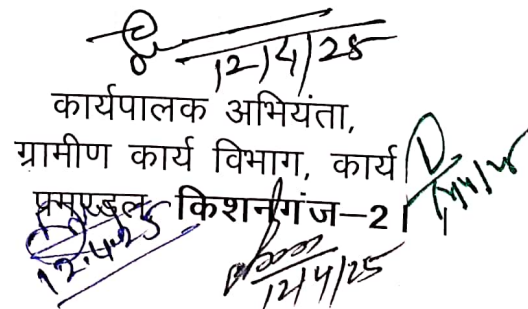 12/4/25
कार्यपालक अभियंता,
ग्रामीण कार्य विभाग, कार्य
प्रमण्डल, किशनगंज–2।
12.4.25
12/4/25